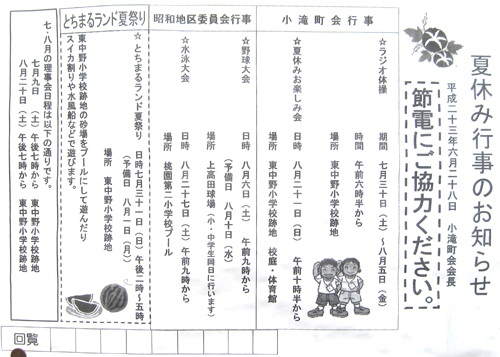 夏休み行事のお知らせ
平成二十三年六月二十八日　小滝町会会長
節電にご協力ください。
小滝町会行事
☆ラジオ体操
期間　七月三十日（土）～八月五日（金）
時間　午前六時半から
場所　東中野小学校跡地
☆夏休みお楽しみ会
日時　八月二十一日（日）　午前十時半から
場所　東中野小学校跡地　校庭・体育館
昭和地区委員会行事
☆野球大会
日時　八月六日（土）　午前九時から
（予備日　八月十日（水）
場所　上高田球場（小・中学生同日に行います）
☆水泳大会
日時　八月二十七日（土）　午前九時から
場所　桃園第二小学校プール
とちまるランド夏祭り
☆とちまるランド夏祭り　日時七月三十一日（日）午後二時～五時
（予備日　八月一日（月）
場所　東中野小学校跡地
東中野小学校跡地の砂場をプールにして遊んだり
スイカ割りや水風船などで遊びます。
七・八月の理事会日程は以下の通りです。
七月九日　（土）午後七時から　東中野小学校跡地
八月二十日　（土）午後七時から　東中野小学校跡地
回覧